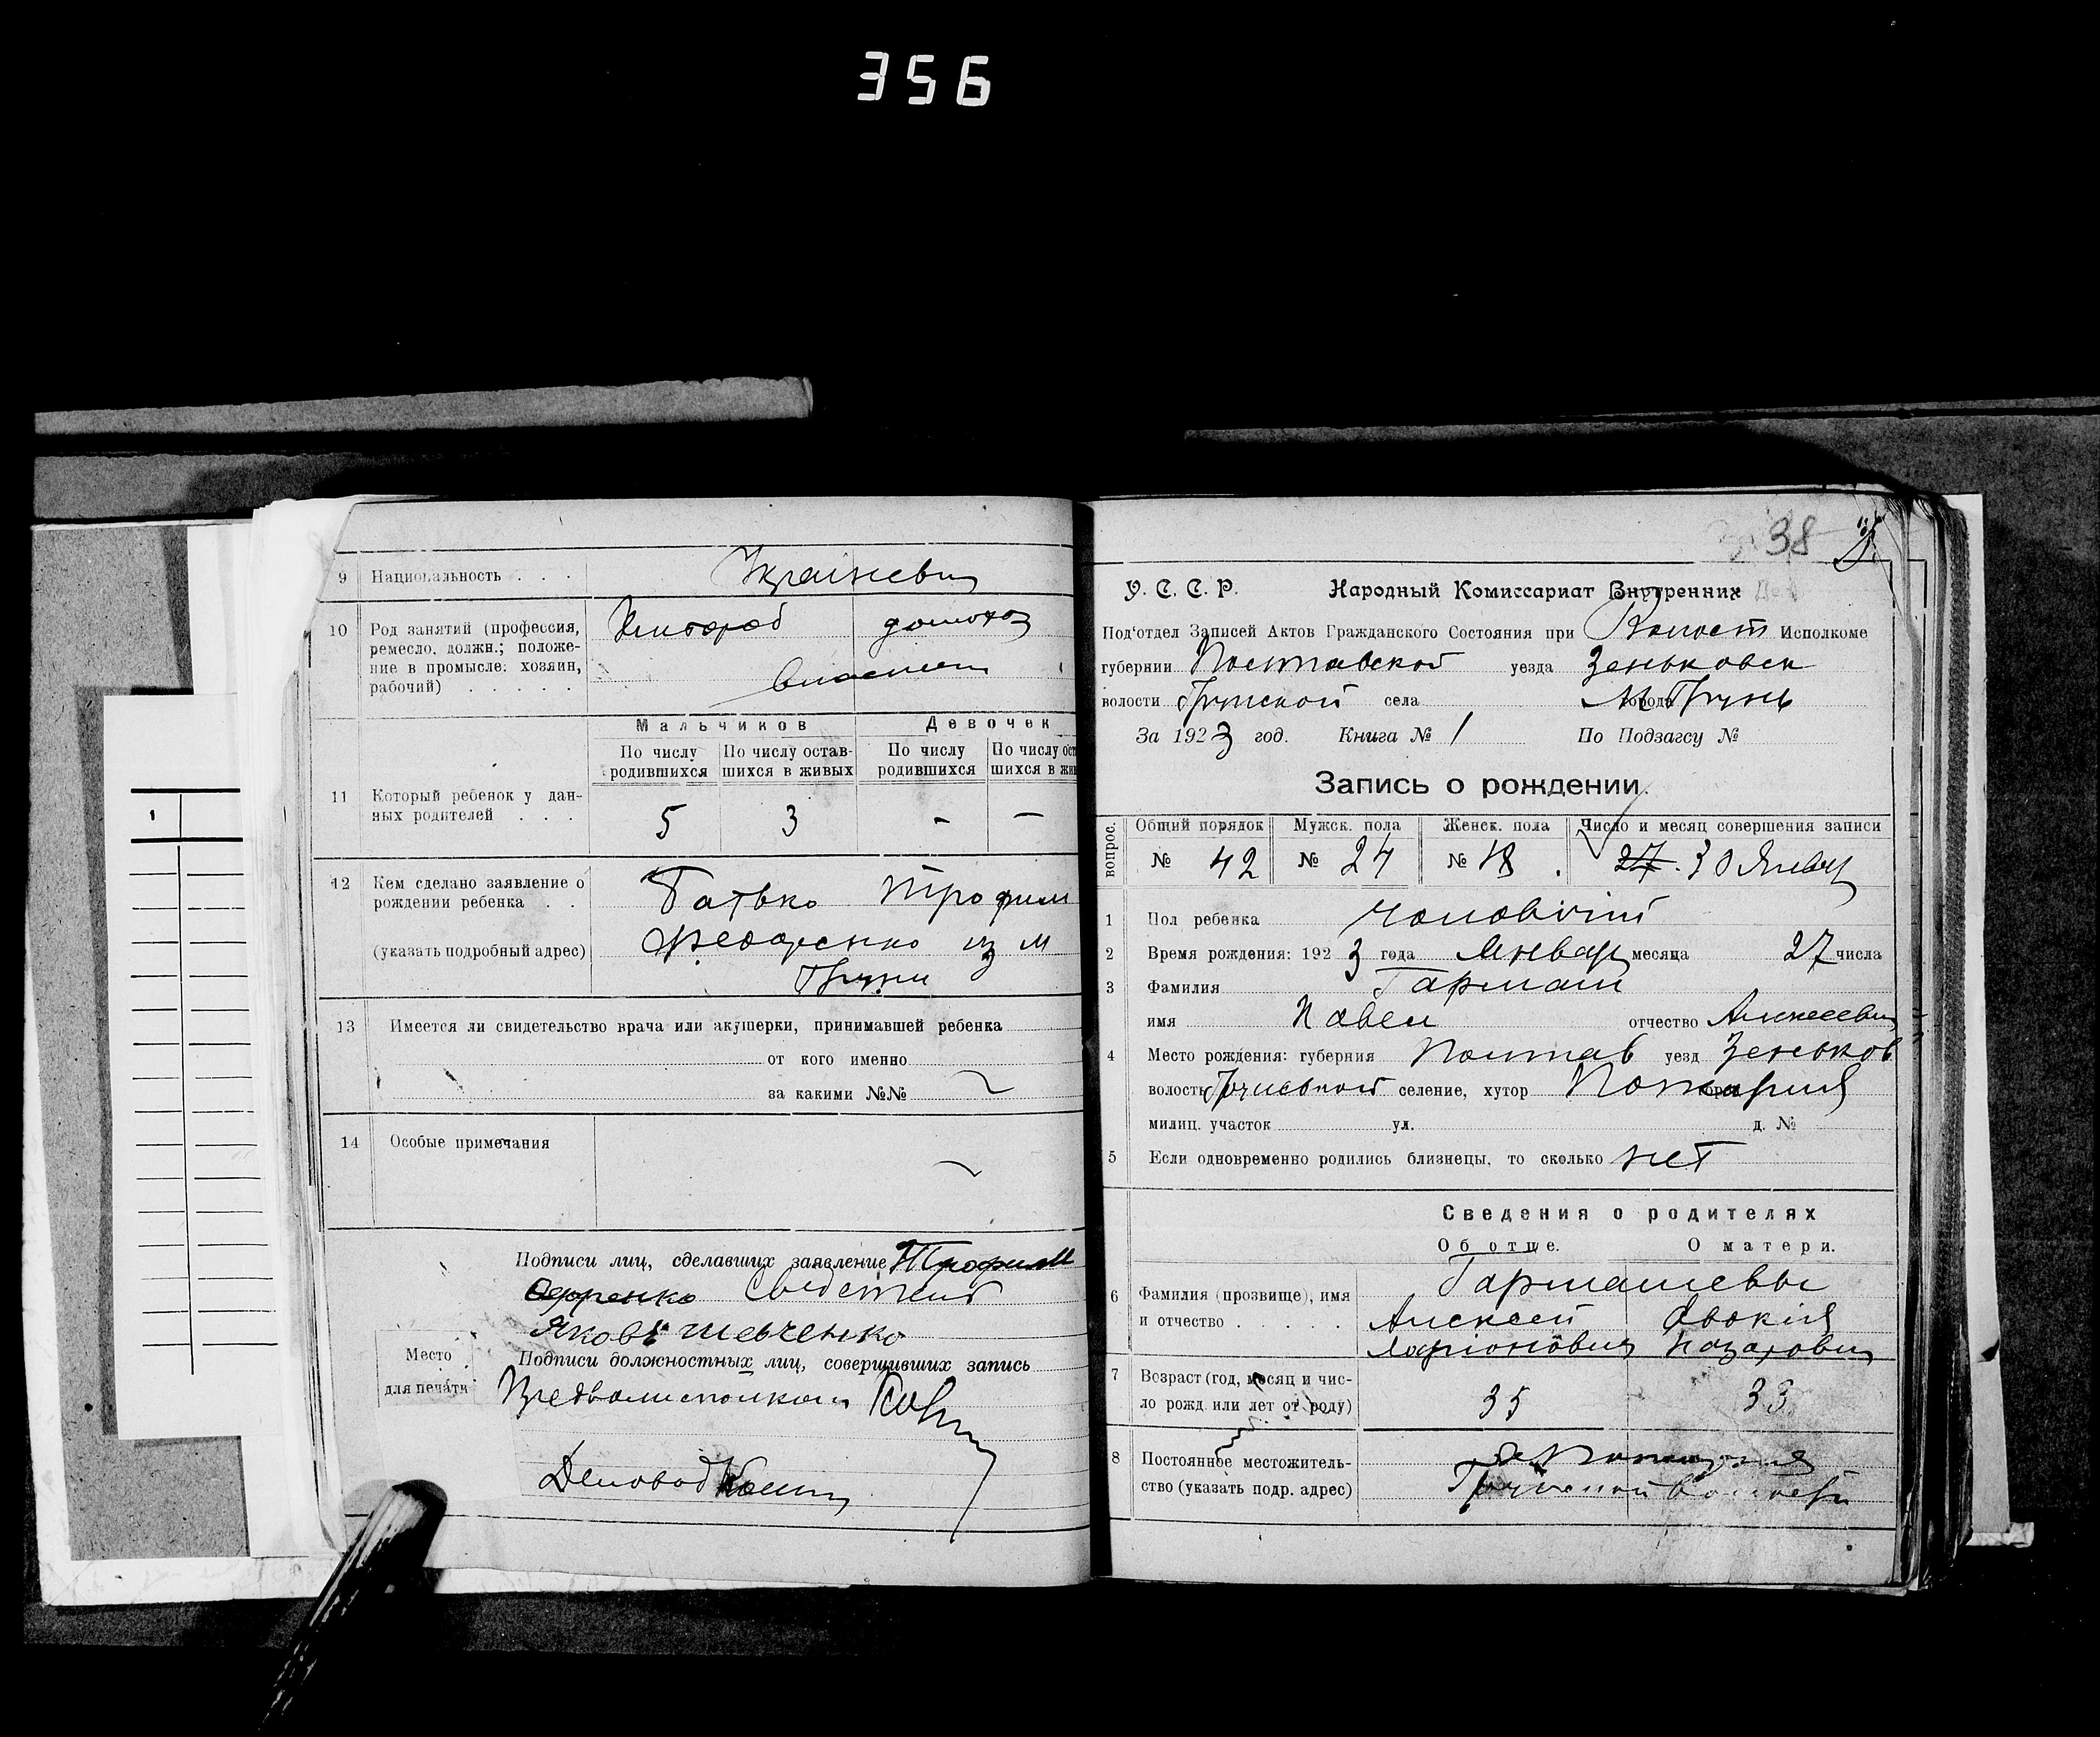 356
9 Национальность . . . Українсвьи
10 Род занятий (профессия, Хлибороб домохоз
ремесло, должн.; положе-
ние в промысле: хозяин,
рабочий) . . . . .
Мальчиков Девочек
По числу родившихся По числу остав-шихся в живых По числу родившихся По числу ост шихся в жив
11 Который ребенок у дан-
ных родителей . . . 5 3 - —
12 Кем сделано заявление о Батько Трофим
рождении ребенка . .
(указать подробный адрес) Федоренко из м
Груни
13 Имеется ли свидетельство врача или акушерки, принимавшей ребенка
от кого именно
за какими №№
14 Особые примечания
Подписи лиц, сделавших заявление Трофим
Свидетель
Яковъ Шевченко
Место
для печати
Подписи должностных лиц, совершивших запись
Предволисполкома
Деловод
38
У. С. С. Р. Народный Комиссариат Внутренних Дел
Под'отдел Записей Актов Гражданского Состояния при Волост Исполкоме
губернии Полтавской уезда Зеньковск
волости Грунской села города м Грунь
За 1923 год. Книга № 1 По Подзагсу №
Запись о рождении.
вопрос. Общий порядок Мужск. пола Женск. пола Число и месяц совершения записи
№ 42 № 24 № 18 27. 30 Январ
1 Пол ребенка чоловічий
2 Время рождения: 1923 года Январ месяца 27 числа
3 Фамилия Гармаш
имя Павел отчество Алексеевич
4 Место рождения: губерния Полтав уезд Зеньков
волость Груньской селение, хутор Пожарня
милиц. участок ул. д. №
5 Если одновременно родились близнецы, то сколько нет
Сведения о родителях
Об отце. О матери.
Гармашевы
6 Фамилия (прозвище), имя
и отчество . . . . . Алексей Авокия
Ларіонович Назаровна
7 Возраст (год, месяц и чис-
ло рожд. или лет от роду) 35 33
8 Постоянное местожитель-
ство (указать подр. адрес) Груньской волости
1